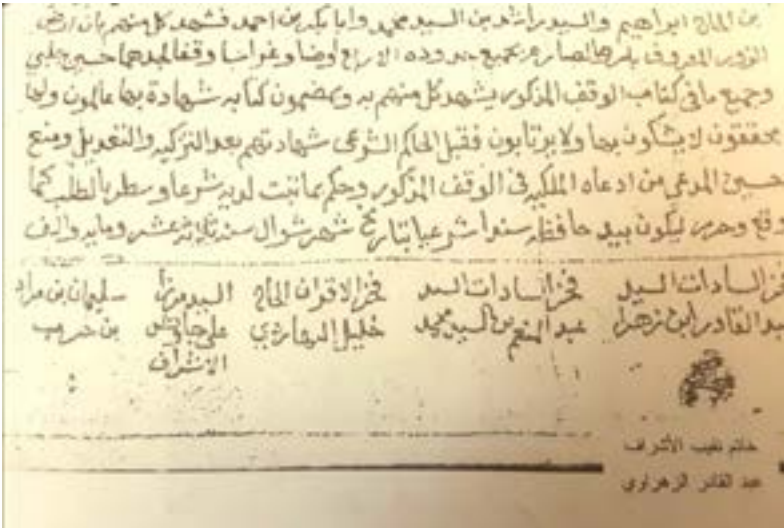 بن الحاج ابراهيم والسيد راشد بن السيد محمد وابا بكر بن احمد فشهد كل منهم بان ارض
المعروف بجميع حدوده الاربع ارضا وغراسا وقفا لجدهما حسين جلبي
وجميع ما في كتاب الوقف المذكور يشهد كل منهم به وبمضمون كتابه شهادة بها عالمون ولها
محققون لا يشكون بها ولا يرتابون فقبل الحاكم الشرعي شهادتهم بعد التزكيه والتعديل ومنع
حسين المدعي من ادعاه الملكيه في الوقف المذكور وحكم بما ثبت لديه شرعا وسطر بالطلب كما
وقع وحرر ليكون بيد حافظه سندا شرعيا بتاريخ شهر شوال سنه ثلاثة عشر ومايه والف
فخر السادات السيد فخر السادات السيد فخر الاقران الحاج السيد مرزا سليمان بن مراد
عبد القادر ابن زهرا عبد المنعم بن السيد محمد خليل علي بن حرب
الاشراف
خاتم نقيب الأشراف
عبد القادر الزهراوي